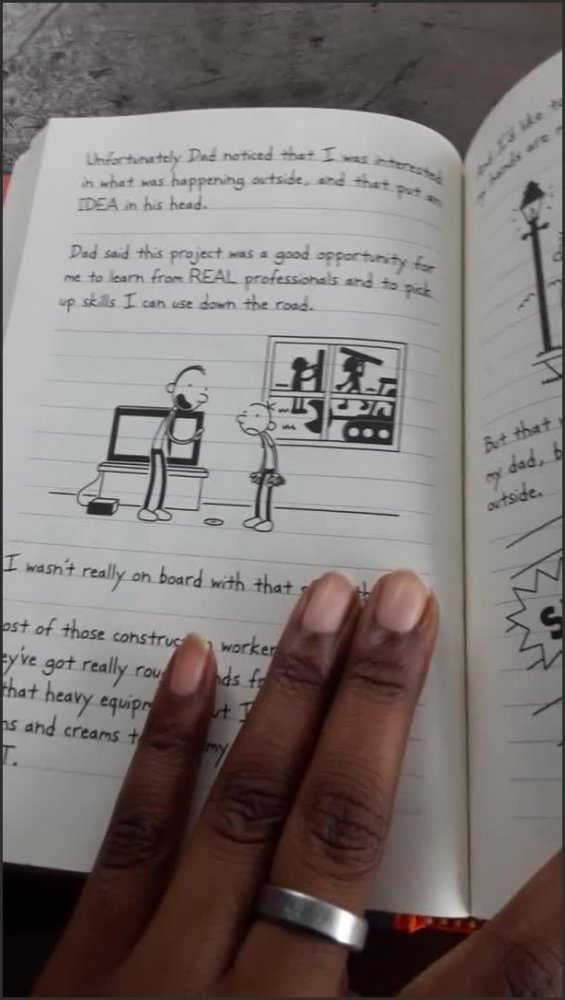 Unfortunately Dad noticed that I was interested
in what was happening outside, and that put an
IDEA in his head.
Dad said this project was a good opportunity for
me to learn from REAL professionals and to pick
up skills I can use down the road.
I wasn't really on board with that
of those construc worker
got really
that heavy
and creams
my
T.
And I'd like to
hands are
But that
my dad,
outside.